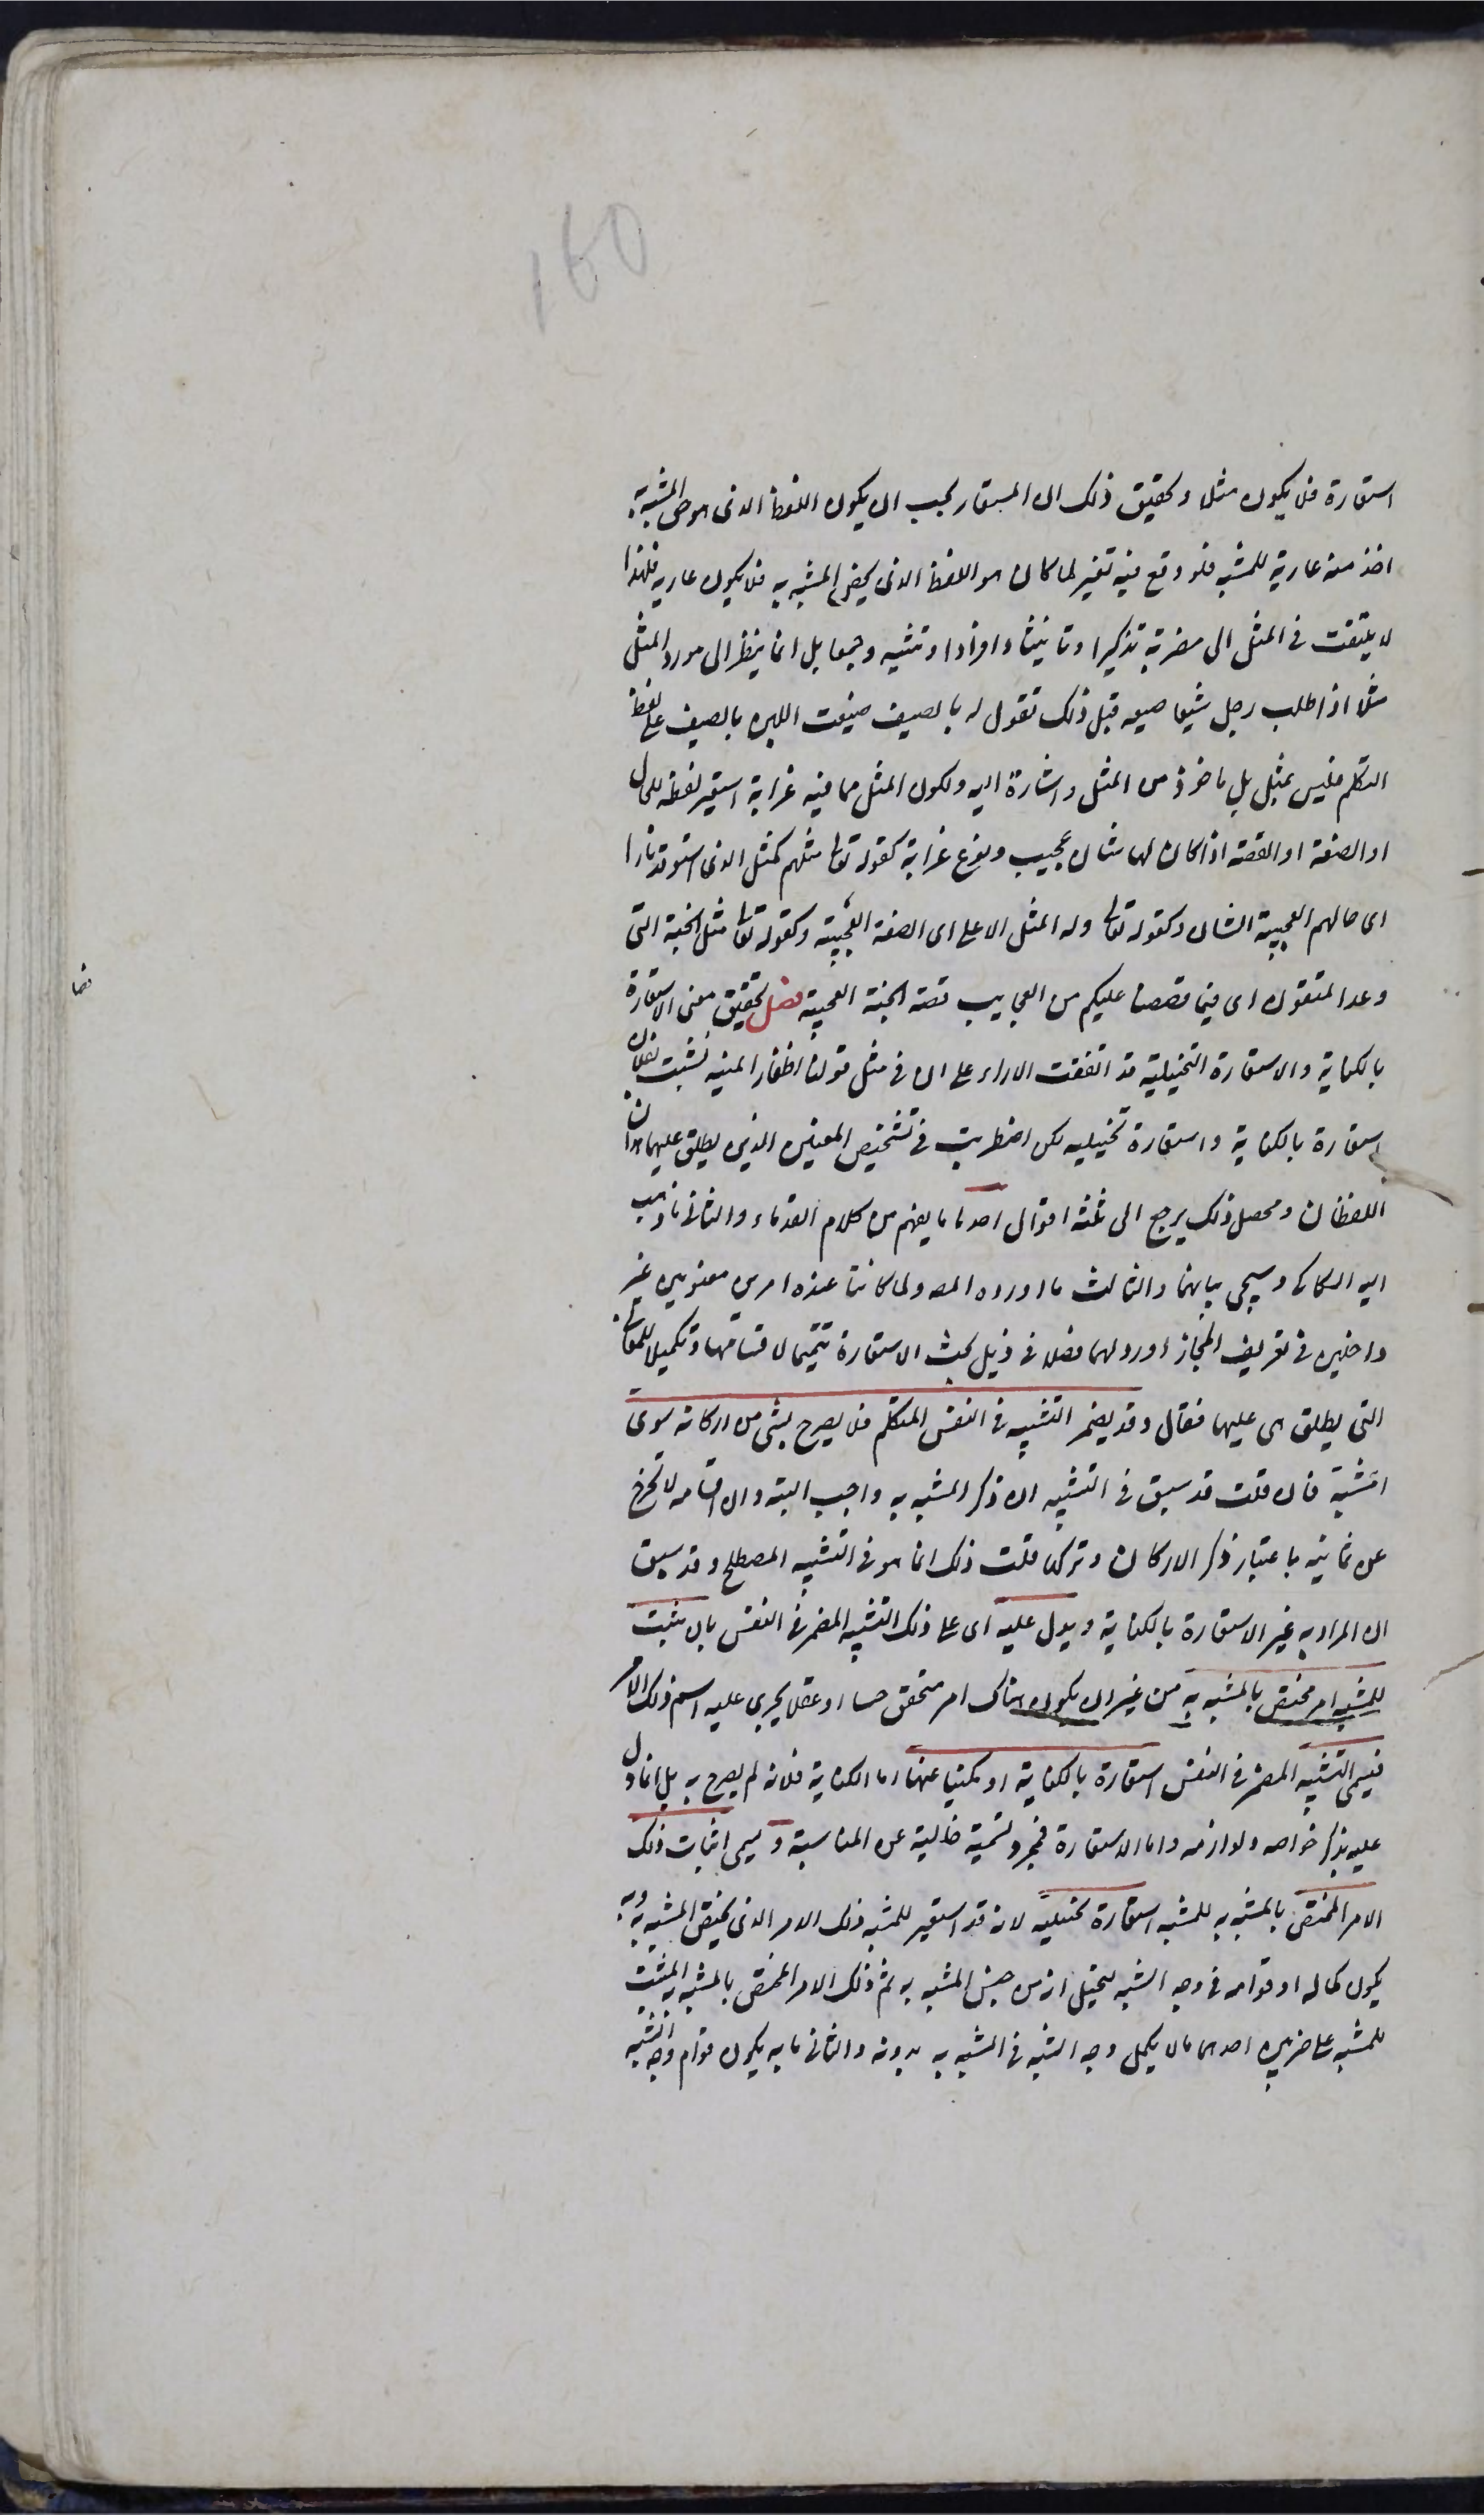 استعارة فلا يكون مثلا وتحقيق ذلك ان المستعار يجب ان يكون اللفظ الذى هو حق المشبه به
اخذ منه عارية للمشبه فلو وقع فيه تغير لما كان هو اللفظ الذى يخص المشبه به فلا يكون عارية فلهذا
لا يلتفت فى المثل الى مضربه تذكيرا وتانيثا وافرادا وتثنية وجمعا بل انما ينظر الى مورد المثل
مثلا اذا طلب رجل شيئا ضيعه قبل ذلك تقول له بالصيف ضيعت اللبن بالصيف على لفظ
التكلم فليس بمثل بل ماخوذ من المثل واشارة اليه ولكون المثل مما فيه غرابة استعير لفظه للحال
او الصفة او القصة اذا كان لها شان عجيب ونوع غرابة كقوله تعا مثلهم كمثل الذى استوقد نارا
اى حالهم العجيبة الشان وكقوله تعا وله المثل الاعلى اى الصفة العجيبة وكقوله تعا مثل الجنة التى
وعد المتقون اى فيما قصصنا عليكم من العجايب قصة الجنة العجيبة فصل لتحقيق معنى الاستعارة
بالكناية والاستعارة التخييلية قد اتفقت الاراء على ان فى مثل قولنا اظفار المنية نشبت بفلان
استعارة بالكناية واستعارة تخييلية لكن اضطربت فى تشخيص المعنيين الذين يطلق عليهما هذان
اللفظان ومحصل ذلك يرجع الى ثلثة اقوال احدها ما يفهم من كلام القدماء والثانى ما ذهب
اليه السكاكى وسيجى بيانهما والثالث ما اورده المص ولما كانتا عنده امرين معنويين غير
داخلين فى تعريف المجاز اورد لهما فصلا فى ذيل بحث الاستعارة تتميما لاقسامها وتكميلا للمعانى
التى يطلق هى عليها فقال وقد يضمر التشبيه فى النفس المتكلم فلا يصرح بشى من اركانه سوى
المشبه فان قلت قد سبق فى التشبيه ان ذكر المشبه به واجب البتة وان اقسامه لا تخرج
عن ثمانية باعتبار ذكر الاركان وتركها قلت ذلك انما هو فى التشبيه المصطلح وقد سبق
ان المراد به غير الاستعارة بالكناية ويدل عليه اى على ذلك التشبيه المضمر فى النفس بان يثبت
للمشبه امر مختص بالمشبه به من غير ان يكون هناك امر متحقق حسا او عقلا يجرى عليه اسم ذلك الامر
فيسمى التشبيه المضمر فى النفس استعارة بالكناية او مكنيا عنها اما الكناية فلانه لم يصرح به بل انما دل
عليه بذكر خواصه ولوازمه واما الاستعارة فمجرد تسمية خالية عن المناسبة ويسمى اثبات ذلك
الامر المختص بالمشبه به للمشبه استعارة تخييلية لانه قد استعير للمشبه ذلك الامر الذى يختص المشبه به وبه
يكون كماله او قوامه فى وجه الشبه ليخيل انه من جنس المشبه به ثم ذلك الامر المختص بالمشبه به المثبت
للمشبه على ضربين احدهما ما لا يكمل وجه الشبه فى المشبه به بدونه والثانى ما به يكون قوام وجه الشبه